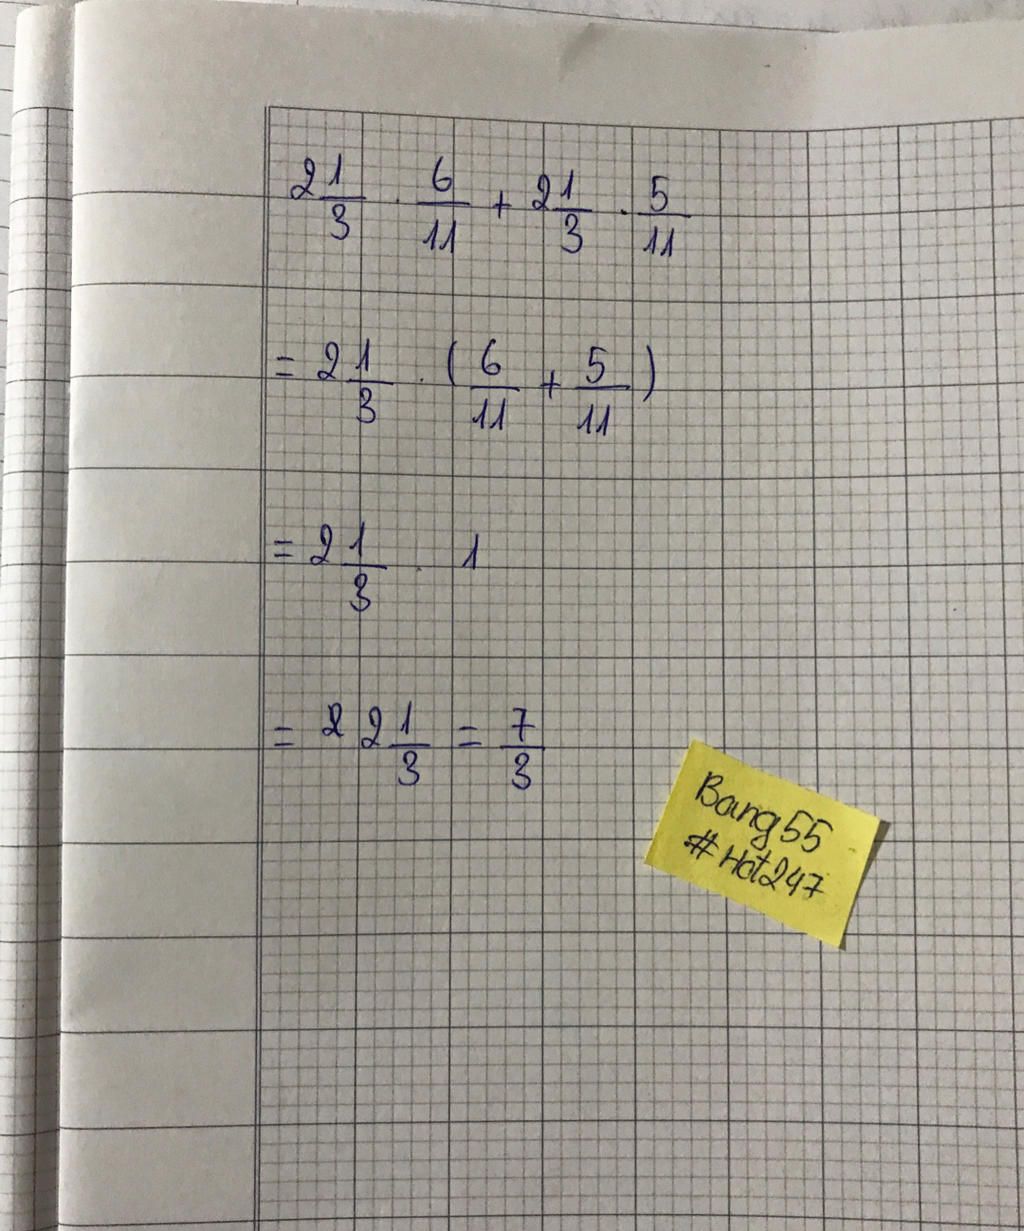 2 1/3 . 6/11 + 2 1/3 . 5/11
= 2 1/3 . ( 6/11 + 5/11 )
= 2 1/3 . 1
= 2 2 1/3 = 7/3
Bang 55
# Hot247